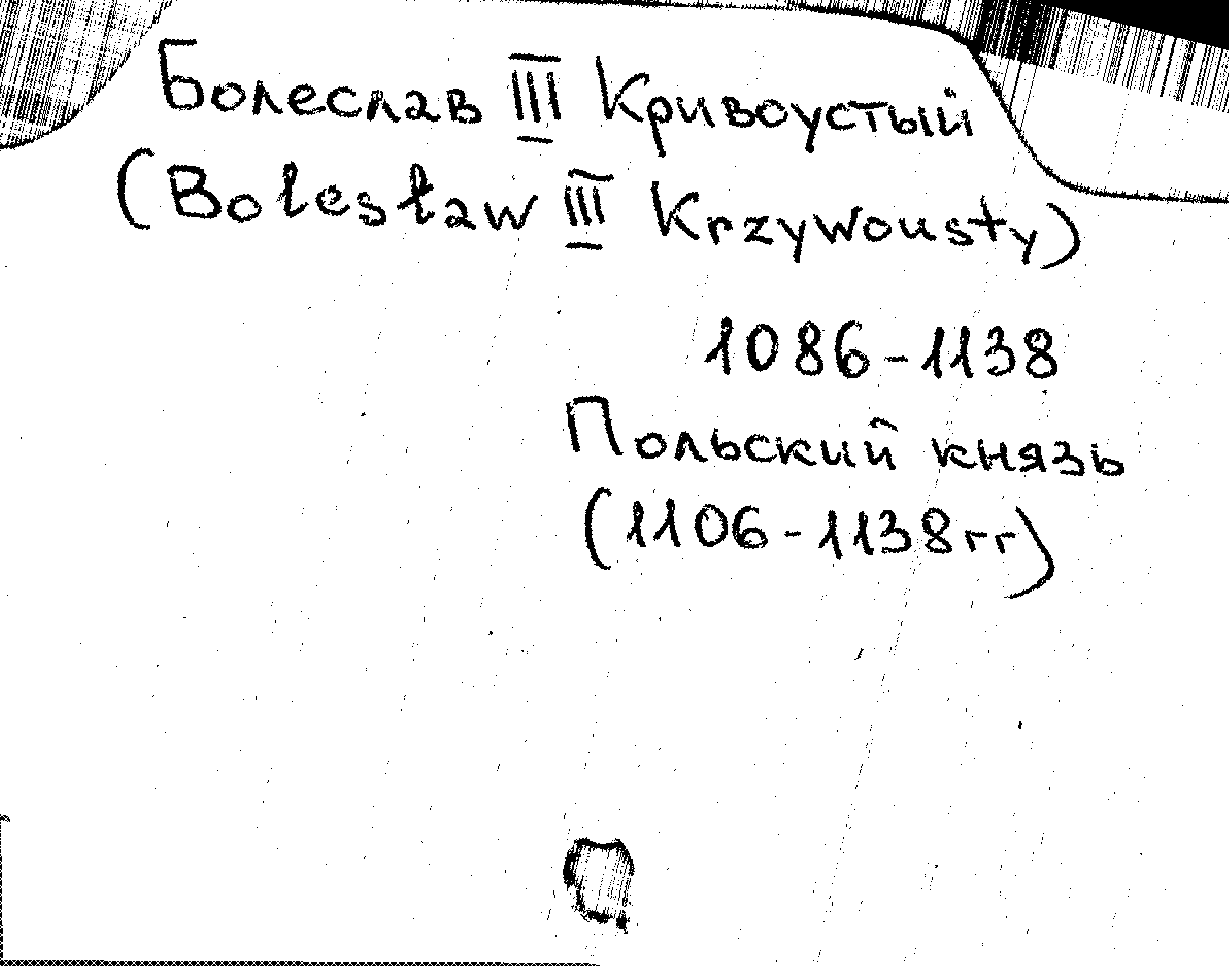 Болеслав III Кривоустый
(Bolesław III Krzywousty)
1086-1138
Польский князь
(1106-1138гг)